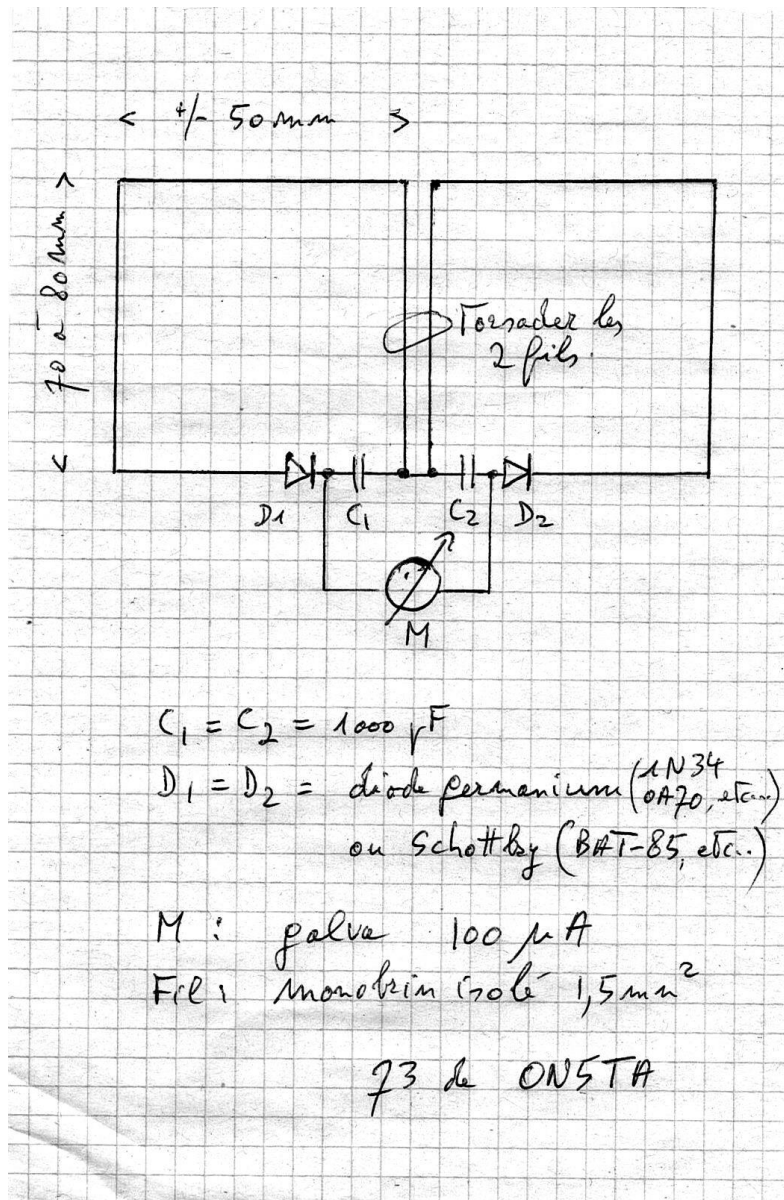 < +/- 50 mm >
< 70 à 80 mm >
Torsader les
2 fils.
D1 C1 C2 D2
M
C1 = C2 = 1000 pF
D1 = D2 = diode germanium (1N34
OA70, etc...)
ou Schottky (BAT-85, etc..)
M : galva 100 µA
Fil : monobrin isolé 1,5 mm²
73 de ON5TA